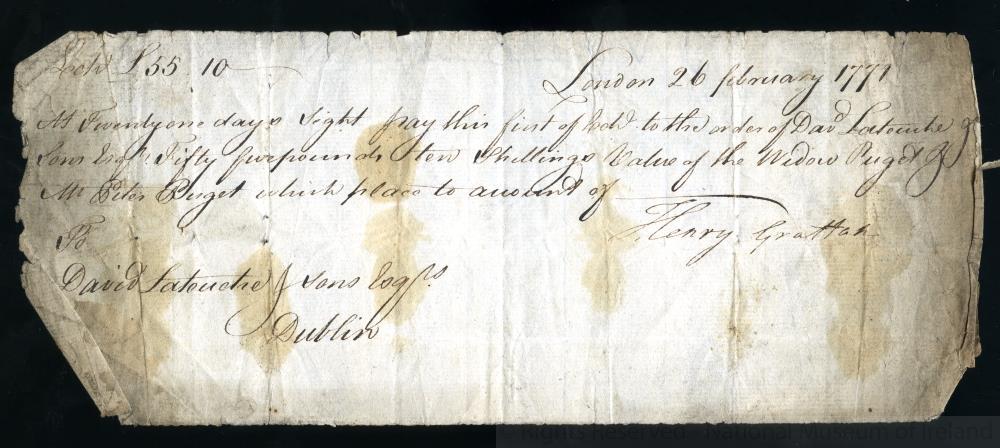 Exch.. £55 10
London 26 february 1771
At Twenty one days Sight pay this first of Exch.. to the order of Davd Latouche &
Sons Esqrs Fifty five pounds ten Shillings Value of the Widow Puget &
Mr Peter Puget which place to account of
Henry Grattan
To
David Latouche & Sons Esqrs
Dublin
© Rights Reserved - National Museum of Ireland